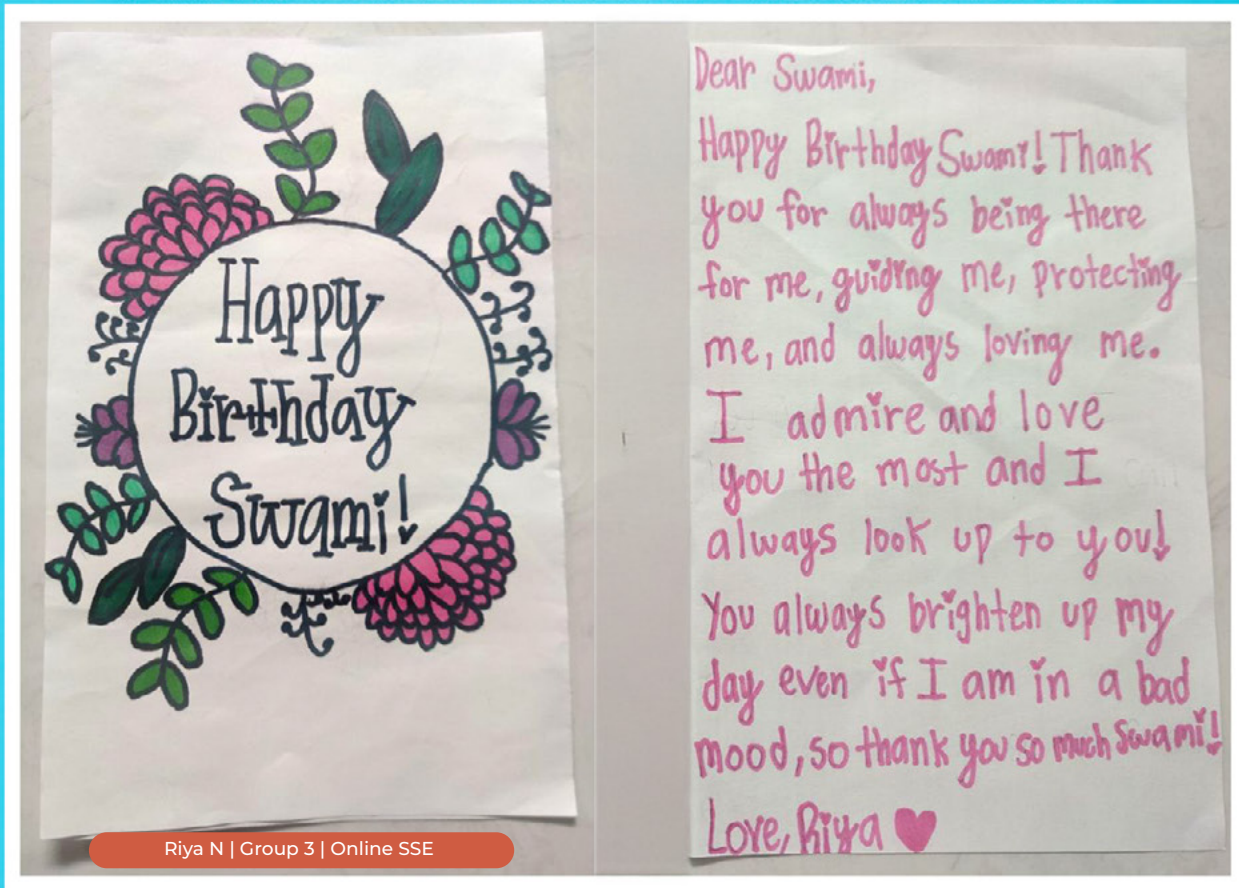 Happy
Birthday
Swami!
Dear Swami,
Happy Birthday Swami! Thank
you for always being there
for me, guiding me, protecting
me, and always loving me.
I admire and love
you the most and I
always look up to you!
You always brighten up my
day even if I am in a bad
mood, so thank you so much Swami!
Love, Riya
Riya N | Group 3 | Online SSE